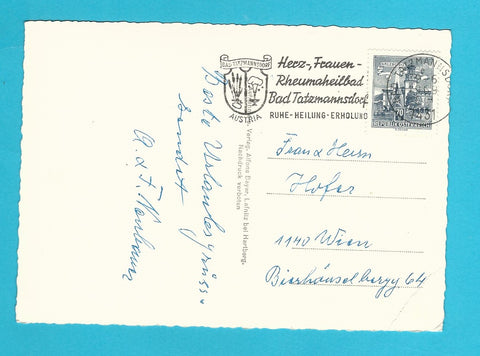 Beste Urlaubsgrüsse
sendet
BAD TATZMANNSDORF
AUSTRIA
Herz-, Frauen-
Rheumaheilbad
Bad Tatzmannsdorf
RUHE - HEILUNG - ERHOLUNG
REPUBLIK ÖSTERREICH
Verlag Alfons Bayer, Lafnitz bei Hartberg.
Nachdruck verboten
Frau u Herrn
Hofer
1140 Wien